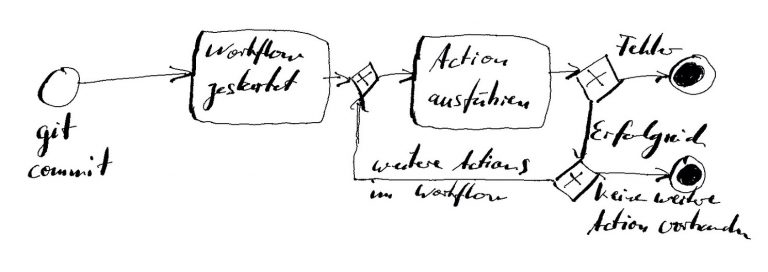 git
commit
Workflow
gestartet
Action
ausführen
Fehler
Erfolgreich
weitere Actions
im Workflow
Keine weitere
Action vorhanden